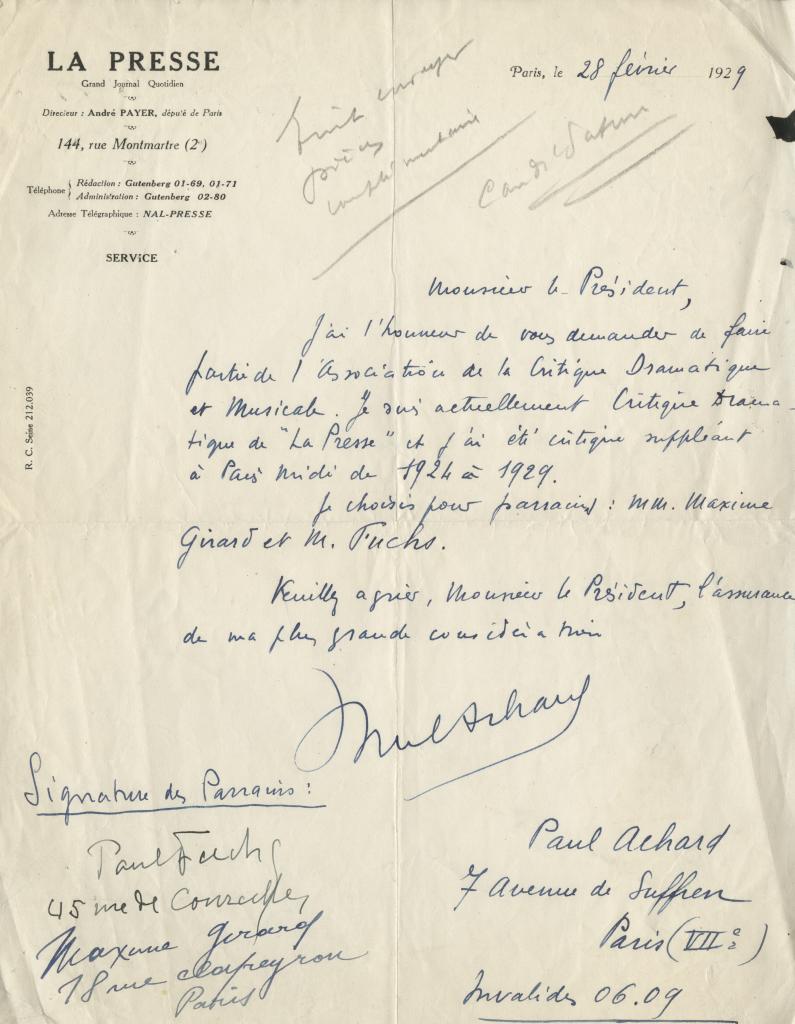 LA PRESSE
Grand Journal Quotidien
Directeur : André PAYER, député de Paris
144, rue Montmartre (2e)
Téléphone { Rédaction : Gutenberg 01-69, 01-71
Administration : Gutenberg 02-80
Adresse Télégraphique : NAL-PRESSE
SERVICE
R. C. Seine 212.039
Paris, le 28 février 1929
envoyer
pièces
complémentaires
Candidature
Monsieur le Président,
J'ai l'honneur de vous demander de faire
partie de l'Association de la Critique Dramatique
et Musicale. Je suis actuellement Critique Drama-
tique de "La Presse" et j'ai été critique suppléant
à Paris Midi de 1924 à 1929.
Je choisis pour parrains : MM. Maxime
Girard et M. Fuchs.
Veuillez agréer, Monsieur le Président, l'assurance
de ma plus grande considération
Paul Achard
Signature des Parrains :
Paul Fuchs
45 rue de Courcelles
Maxime Girard
18 rue Clapeyron
Paris
Paul Achard
7 Avenue de Suffren
Paris (VIIe)
Invalides 06.09